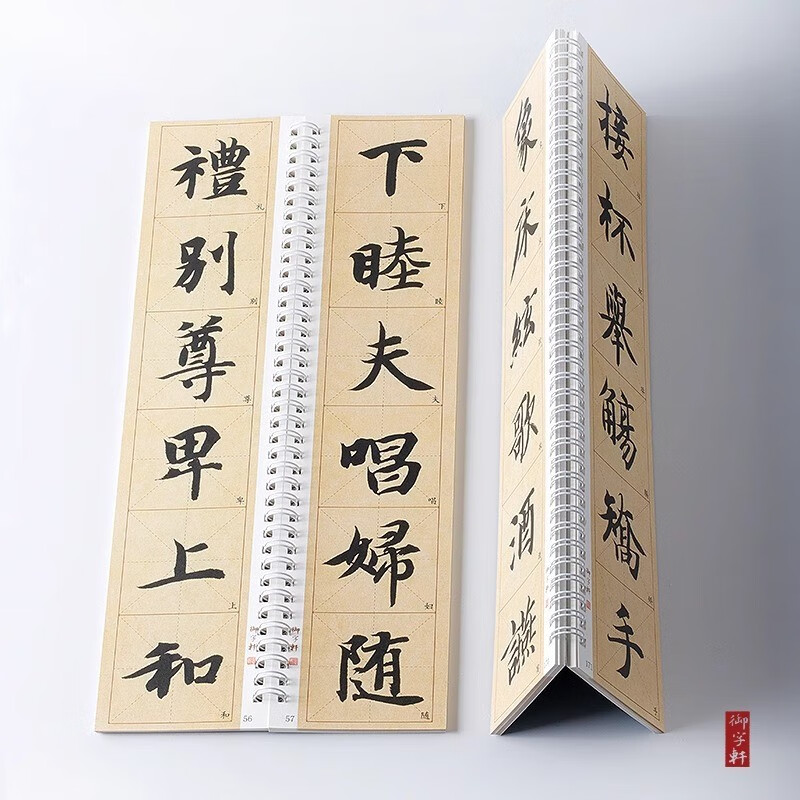 禮 礼
別 别
尊 尊
卑 卑
上 上
和 和
56
御字軒
下 下
睦 睦
夫 夫
唱 唱
婦 妇
随 随
57
御字軒
像
床
絃
歌
酒
讌
接
杯
舉
觴
矯
手
御字軒